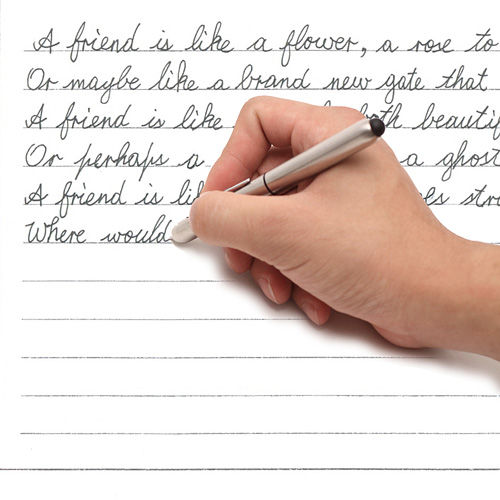 A friend is like a flower, a rose to
Or maybe like a brand new gate that
A friend is like both beautif
Or perhaps a a ghost
A friend is lik es stro
Where would